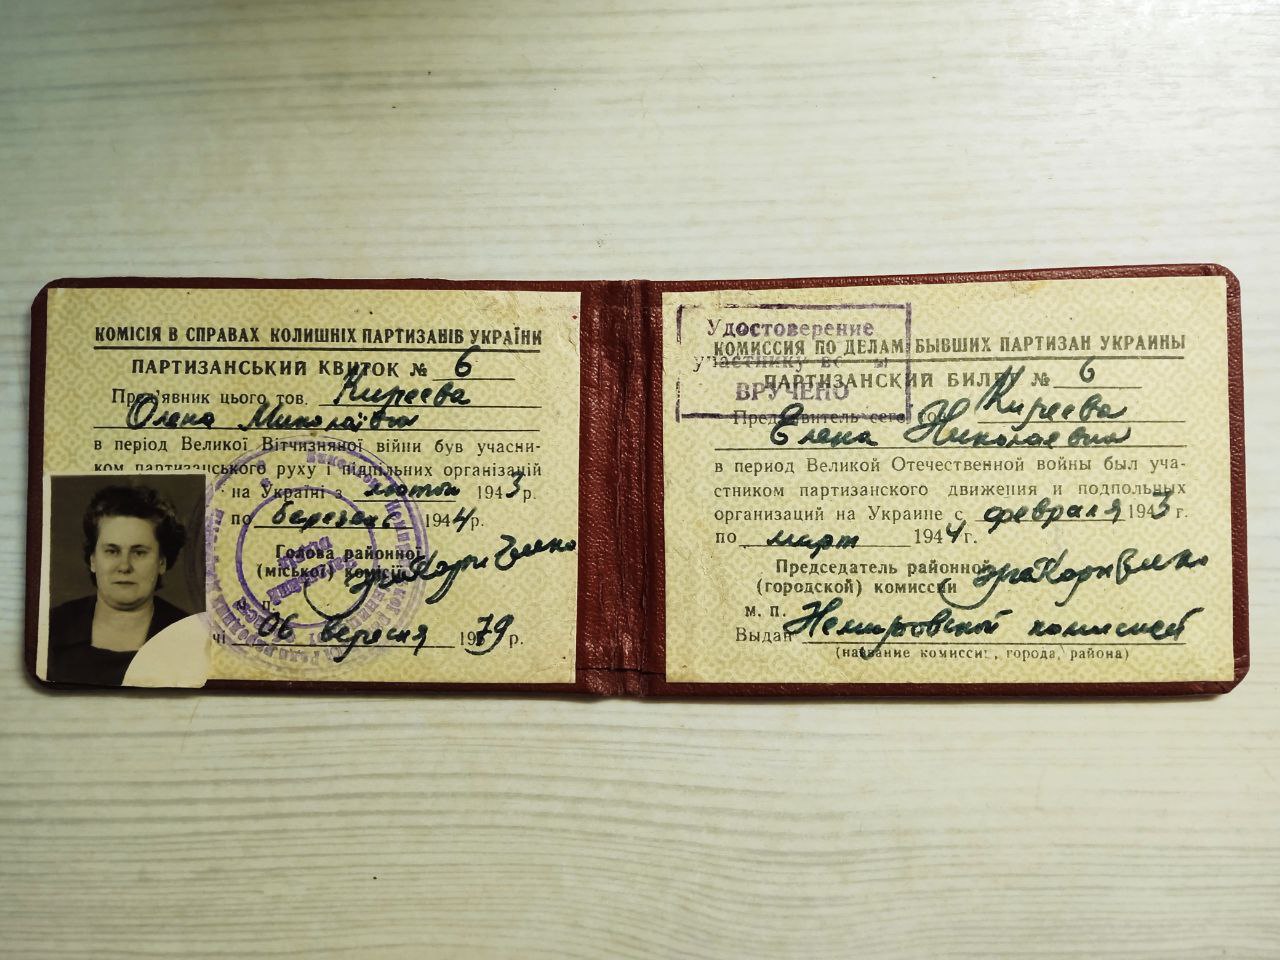 КОМІСІЯ В СПРАВАХ КОЛИШНІХ ПАРТИЗАНІВ УКРАЇНИ
ПАРТИЗАНСЬКИЙ КВИТОК № 6
Пред'явник цього тов. Киреева
Олена Миколаївна
в період Великої Вітчизняної війни був учасни-
ком партизанського руху і підпільних організацій
на Україні з лютой 1943 р.
по березень 1944 р.
Голова районної
(міської) комісії
п.
06 вересня 1979 р.
Удостоверение
участнику
ВРУЧЕНО
КОМИССИЯ ПО ДЕЛАМ БЫВШИХ ПАРТИЗАН УКРАИНЫ
ПАРТИЗАНСКИЙ БИЛЕТ № 6
Предъявитель сего тов. Киреева
Елена Николаевна
в период Великой Отечественной войны был уча-
стником партизанского движения и подпольных
организаций на Украине с февраля 1943 г.
по март 1944 г.
Председатель районной
(городской) комиссии
м. п.
Выдан Немировской комиссией
(название комиссии, города, района)